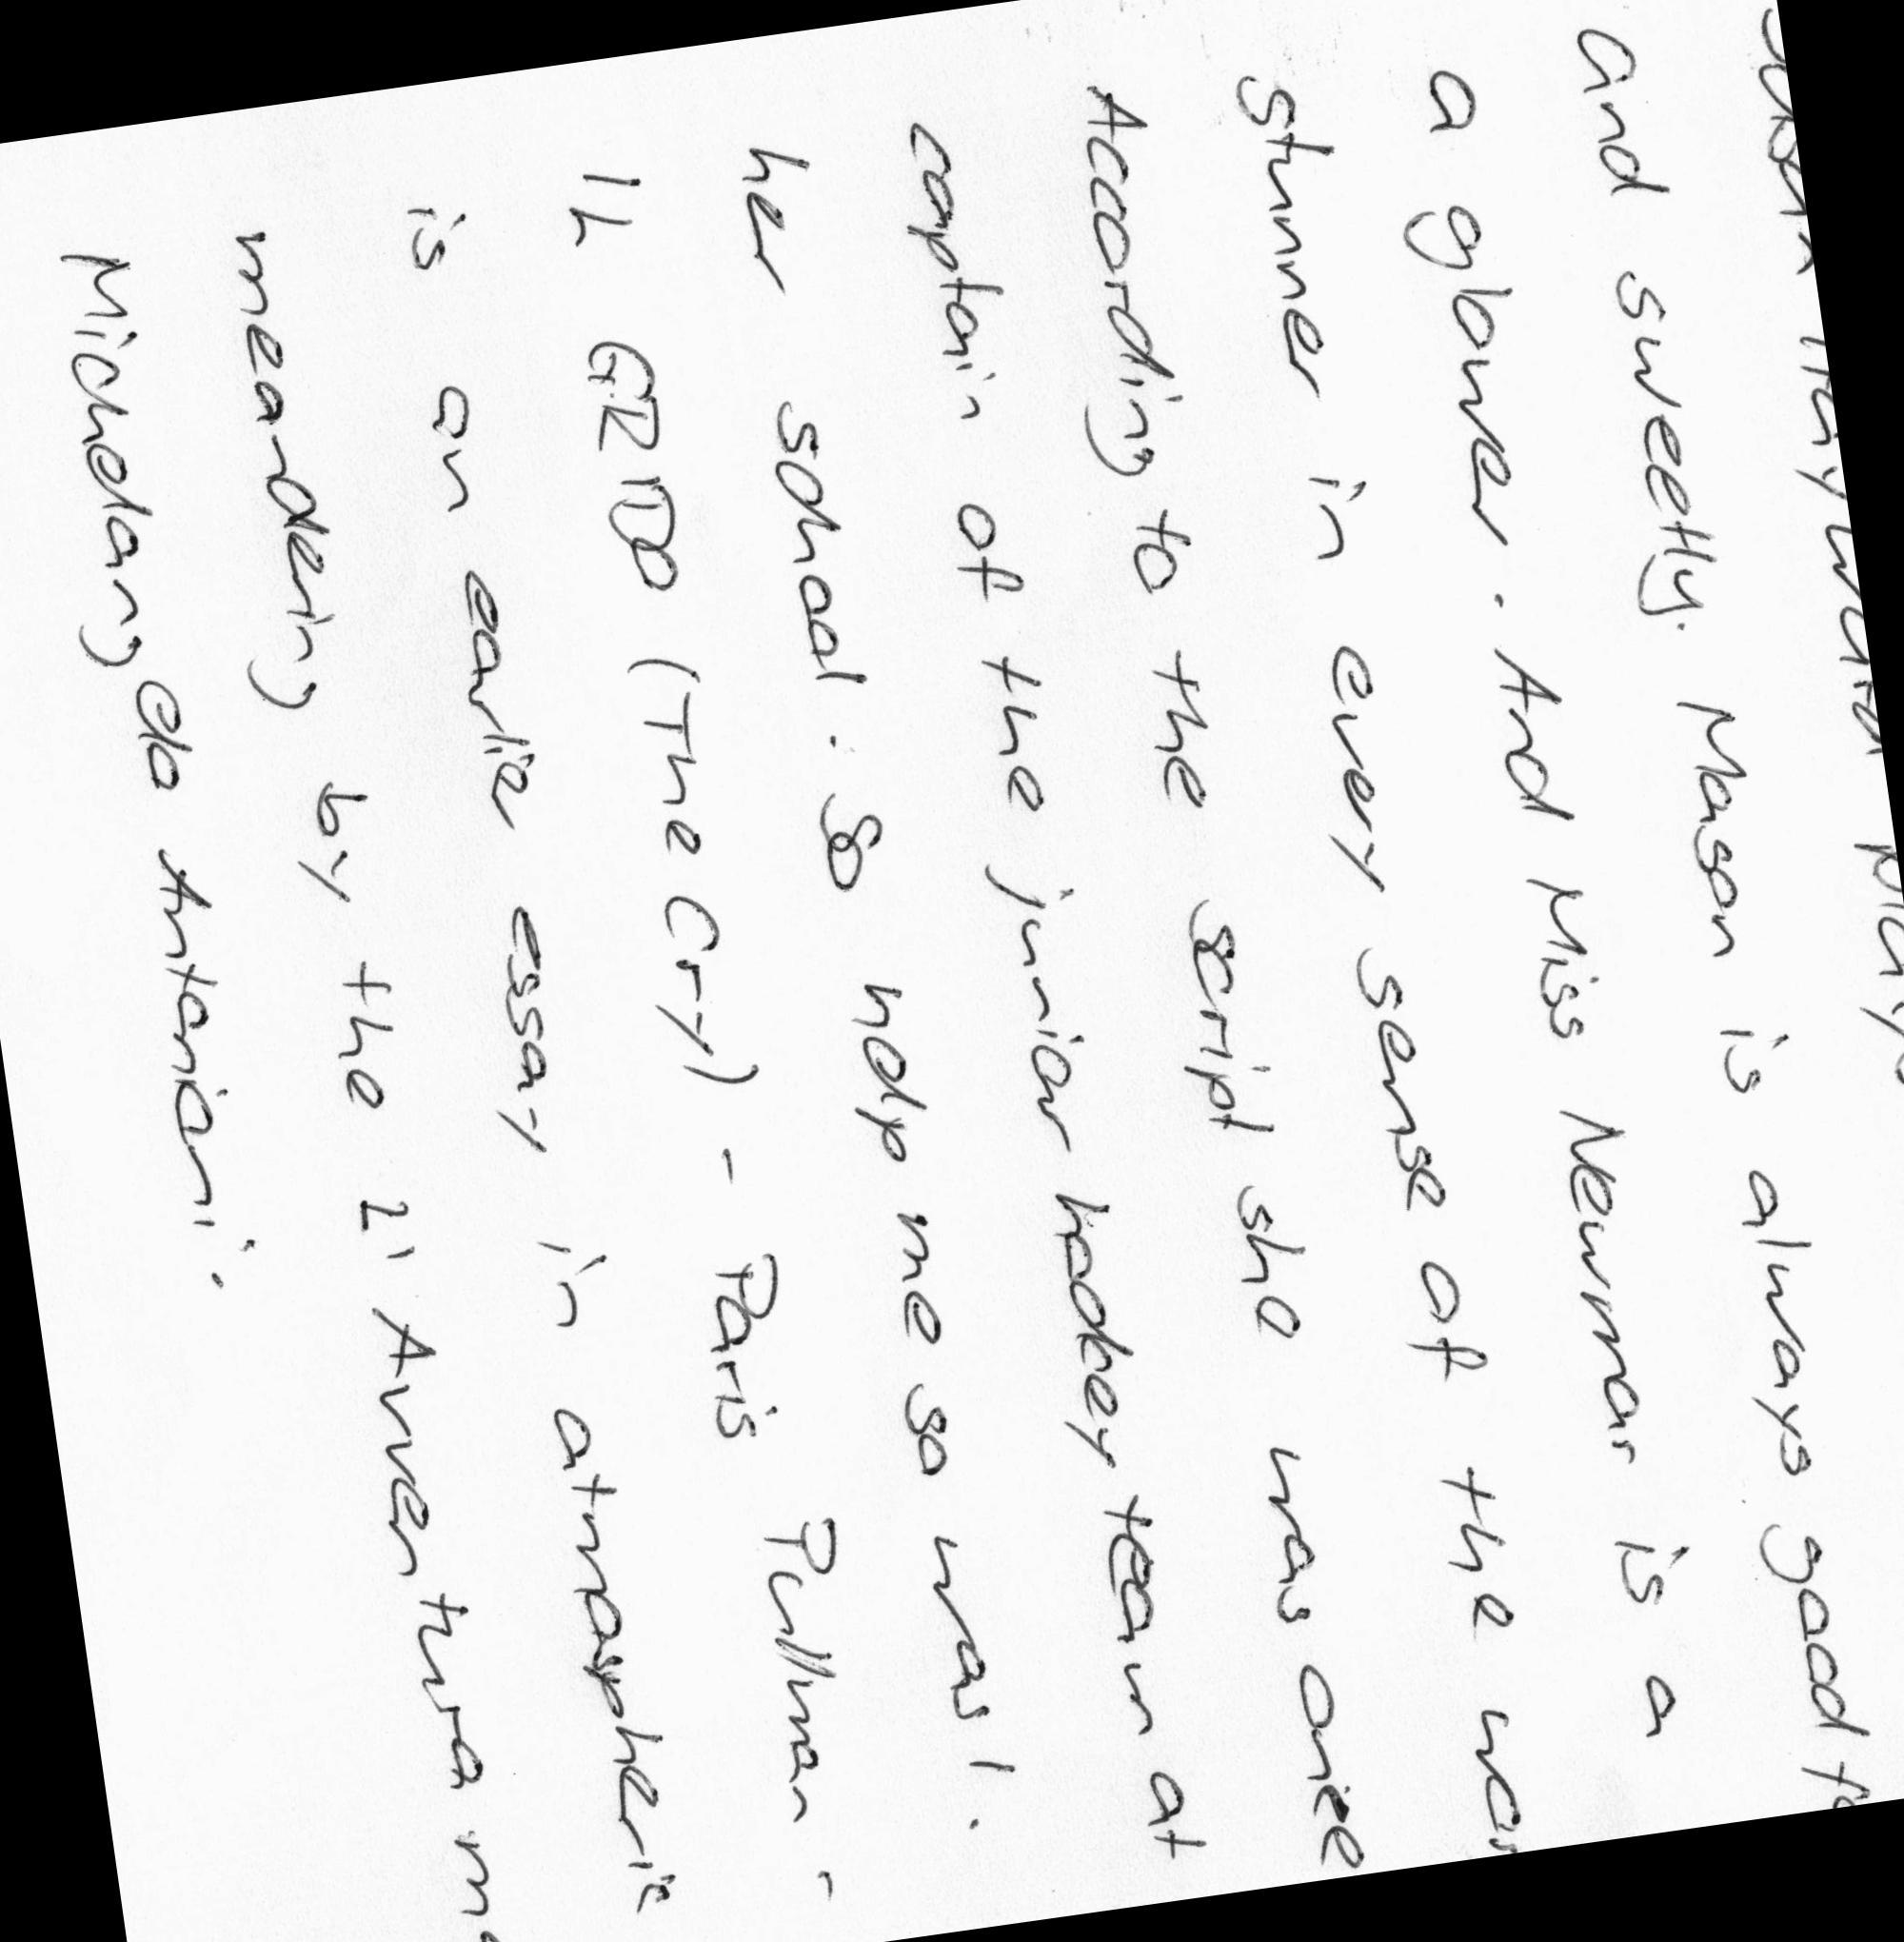 and sweetly. Mason is always good
a glower. And Miss Newmar is a
stunner in every sense of the
According to the script she was once
captain of the junior hockey team at
her school. So help me so was I.
IL GRIDO (The Cry) - Paris Pullman -
is an earlier essay in atmospheric
meandering by the L'Avventura
Michelangelo Antonioni.